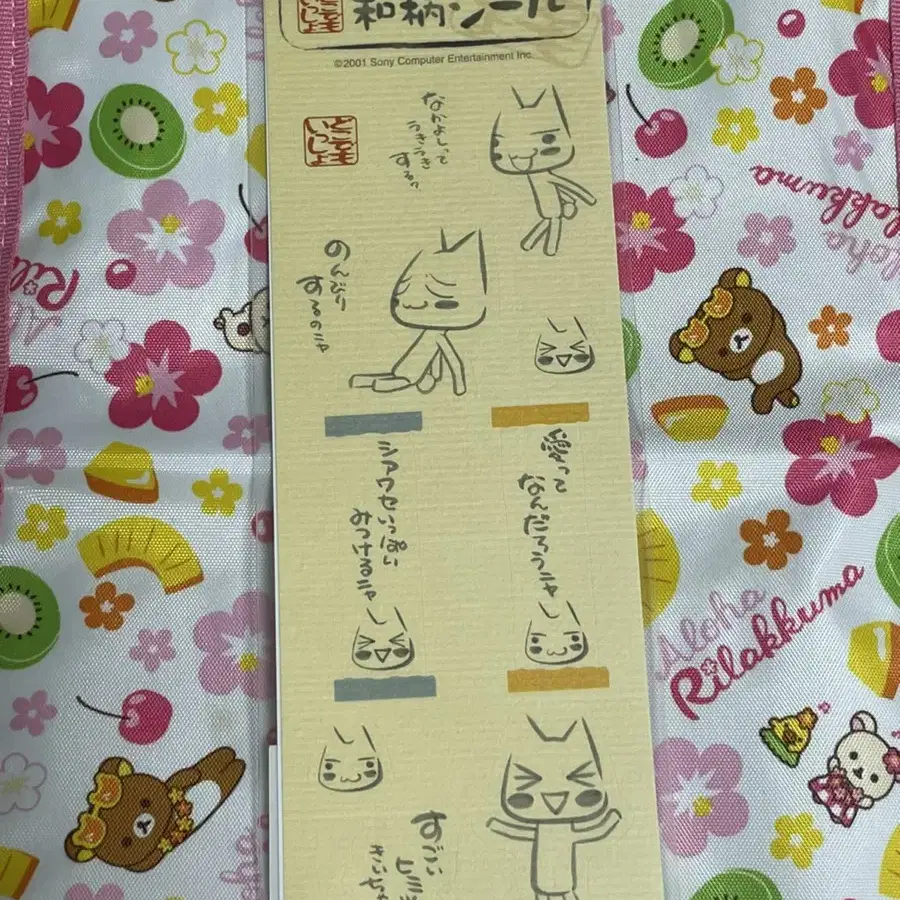 どこでもいっしょ
和柄シール
©2001 Sony Computer Entertainment Inc.
どこでもいっしょ
なかよしって
うきうき
するっ
のんびり
するのニャ
愛って
なんだろうニャ
シアワセいっぱい
みつけるニャ
すごい
Aloha
Rilakkuma
Aloha
Rilakkuma